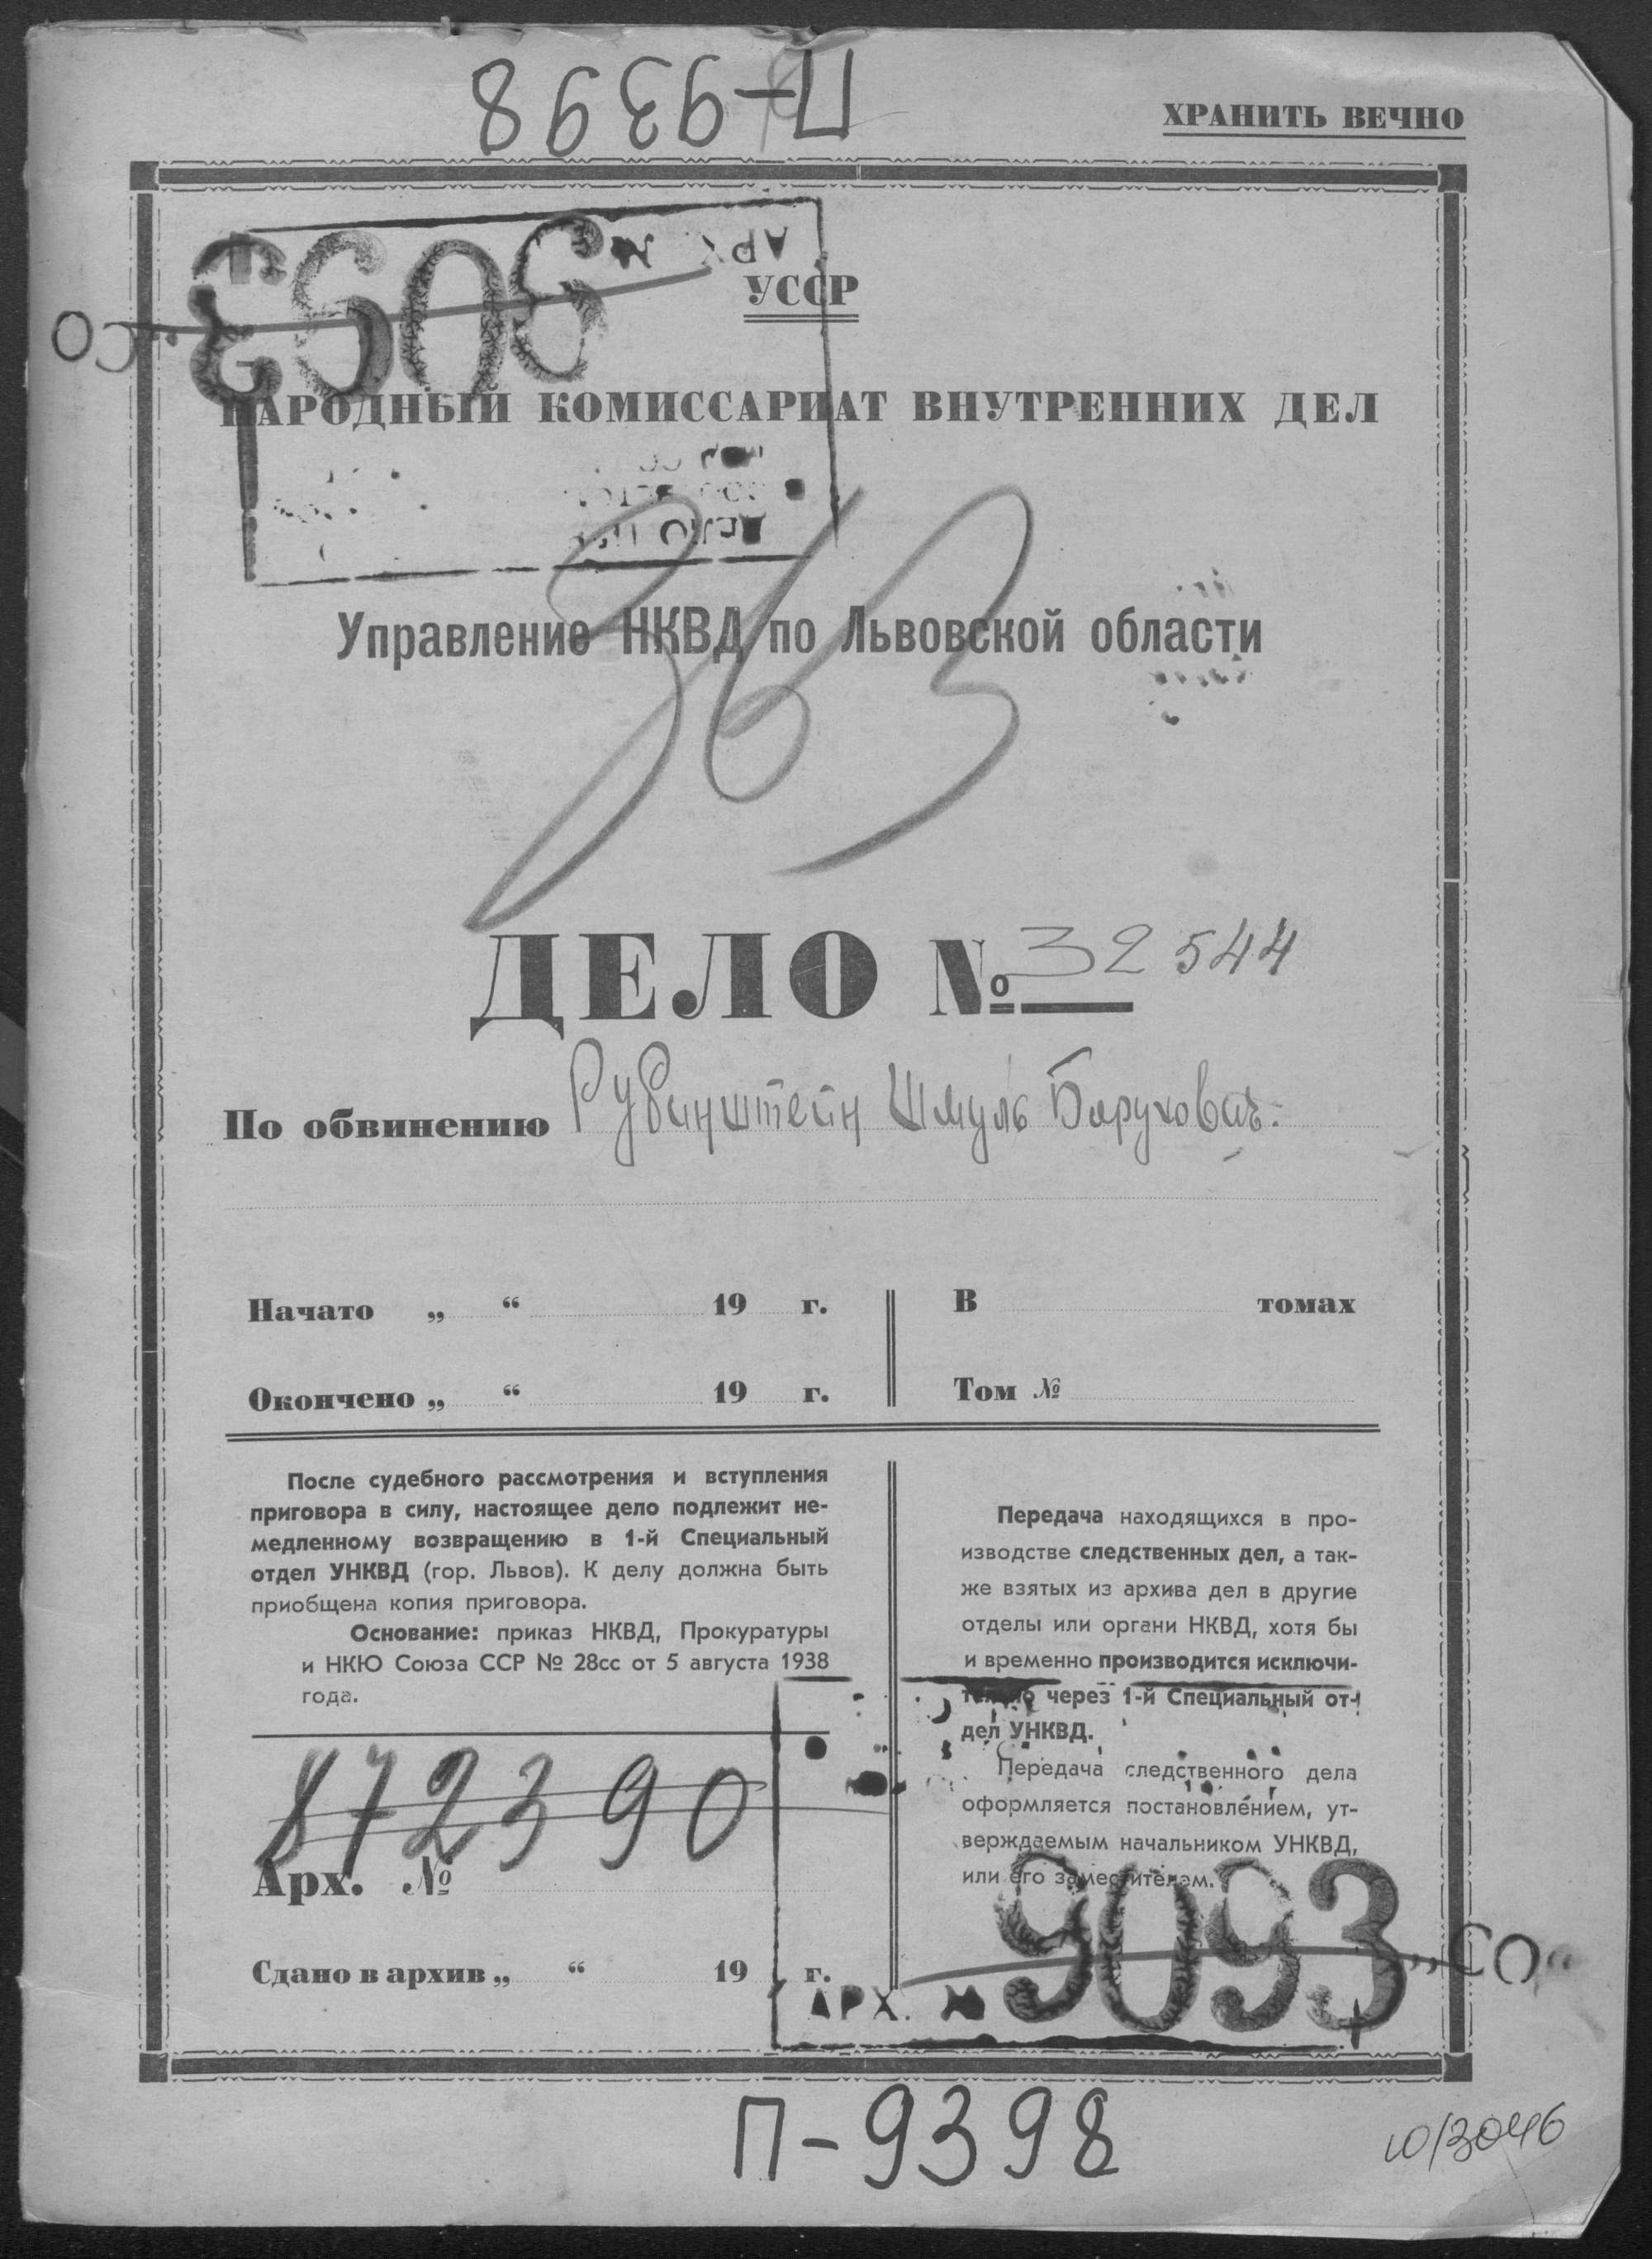 П-9398
ХРАНИТЬ ВЕЧНО
АРХ. №
9093 „СО“
УССР
НАРОДНЫЙ КОМИССАРИАТ ВНУТРЕННИХ ДЕЛ
363
Управление НКВД по Львовской области
ДЕЛО № 32544
По обвинению Рубинштейн Шмуль Барухович.
Начато „ “ 19 г.
В томах
Окончено „ “ 19 г.
Том №
После судебного рассмотрения и вступления
приговора в силу, настоящее дело подлежит не-
медленному возвращению в 1-й Специальный
отдел УНКВД (гор. Львов). К делу должна быть
приобщена копия приговора.
Основание: приказ НКВД, Прокуратуры
и НКЮ Союза ССР № 28сс от 5 августа 1938
года.
Передача находящихся в про-
изводстве следственных дел, а так-
же взятых из архива дел в другие
отделы или органи НКВД, хотя бы
и временно производится исключи-
тельно через 1-й Специальный от-
дел УНКВД.
Передача следственного дела
оформляется постановлением, ут-
верждаемым начальником УНКВД,
или его заместителем.
872390
Арх. №
Сдано в архив „ “ 19 г.
АРХ. № 9093 „СО“
П-9398